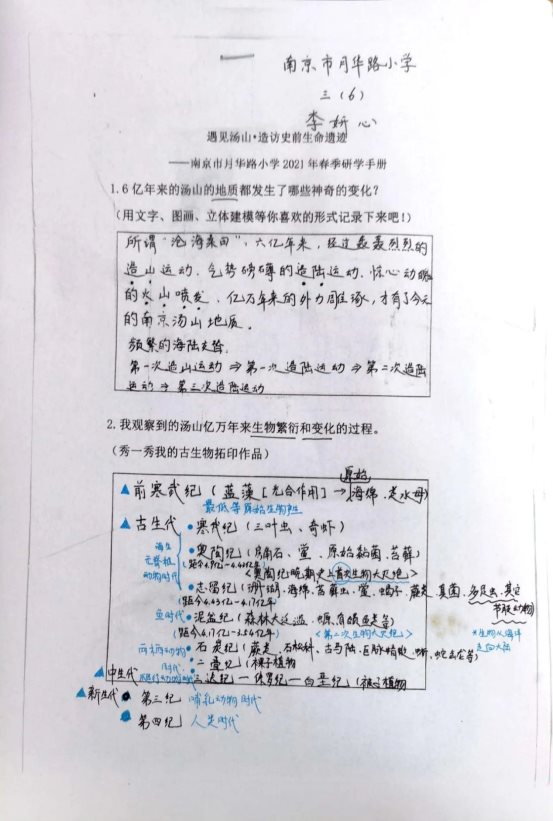 南京市月华路小学
三（6）
李妍心
遇见汤山·造访史前生命遗迹
——南京市月华路小学2021年春季研学手册
1.6亿年来的汤山的地质都发生了哪些神奇的变化？
（用文字、图画、立体建模等你喜欢的形式记录下来吧！）
所谓“沧海桑田”，六亿年来，经过轰轰烈烈的
造山运动、气势磅礴的造陆运动、惊心动魄
的火山喷发、亿万年来的外力雕琢，才有了今天
的南京汤山地质。
频繁的海陆交替。
第一次造山运动⇒第一次造陆运动⇒第二次造陆
运动⇒第三次造陆运动
2.我观察到的汤山亿万年来生物繁衍和变化的过程。
（秀一秀我的古生物拓印作品）
原始
▲前寒武纪（蓝藻[光合作用]→海绵、老水母）
最低等原始生物产生
▲古生代 •寒武纪（三叶虫、奇虾）
海生无脊椎动物时代
•奥陶纪（鹦鹉石、萤、原始黏菌、苔藓）
（距今4.9亿-4.43亿年） <奥陶纪晚期史上首次生物大灭绝>
•志留纪（珊瑚、海绵、苔藓虫、萤、蝎子、蕨类、真菌、多足虫、其它
节肢动物）
（距今4.43亿-4.17亿年）
鱼时代 •泥盆纪（森林大泛滥、螈、有颌鱼类等）
（距今4.17亿-3.54亿年） <第二次生物大灭绝> *生物从海洋
走向大陆
两栖动物时代 •石炭纪（蕨类、石松科、古马陆、巨脉蜻蜓、蜥、蛇类等）
•二叠纪（裸子植物
▲中生代 爬行动物时代 •三迭纪—侏罗纪—白垩纪（被子植物
▲新生代 •第三纪 哺乳动物时代
•第四纪 人类时代